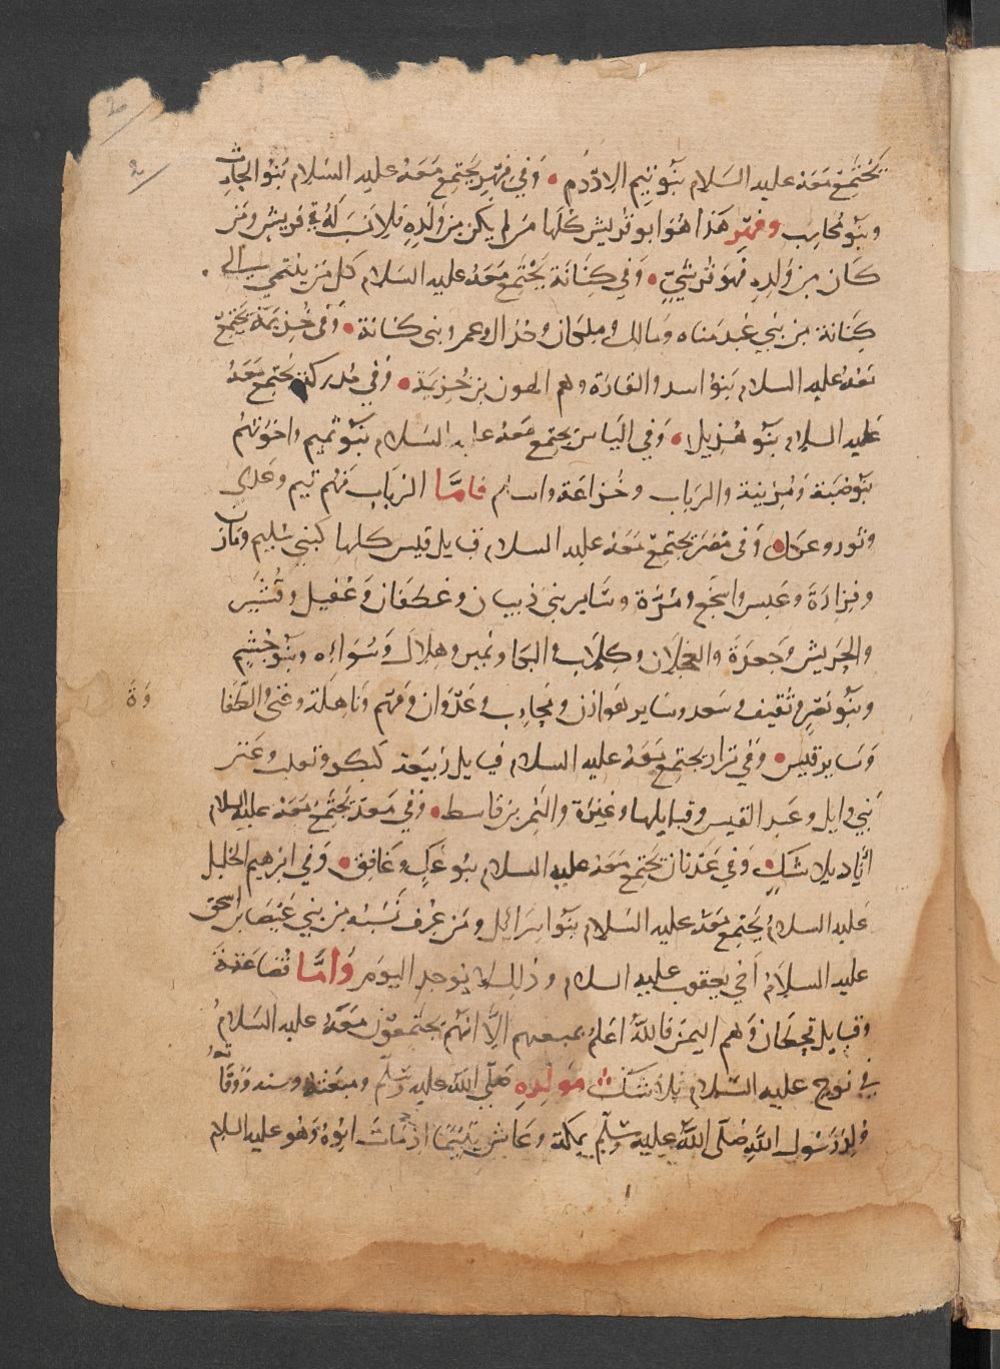 2
2
يجتمع معه عليه السلام بنو تيم الادرم • وفي فهر يجتمع معه عليه السلام بنو الحارث
وبنو محارب وفهر هذا هو ابو قريش كلها من لم يكن من ولده فلا نسب له في قريش ومن
كان من ولده فهو قرشي • وفي كنانة يجتمع معه عليه السلام كل من ينتمي الى
كنانة من بني عبد مناه ومالك وملكان وعمرو بني كنانة • وفي خزيمة يجتمع
معه عليه السلام بنو اسد والقارة وهم الهون بن خزيمة • وفي مدركة يجتمع معه
عليه السلام بنو هذيل • وفي الياس يجتمع معه عليه السلام بنو تميم واخوتهم
بنو ضبة ومزينة والرباب وخزاعة واسلم فاما الرباب فهم تيم وعدي
وثور وعكل • وفي مضر يجتمع معه عليه السلام قبايل قيس كلها كبني سليم ومازن
وفزارة وعبس واشجع ومرة وساير بني ذبيان وغطفان وعقيل وقشير
والحريش وجعدة والعجلان وكلاب والبكا ونمير وهلال وسواءه وبنو جشم
وبنو نصر وثقيف وسعد وساير هوازن ومحارب وعدوان وفهم وباهلة وغنى والطفا
وة
وساير قيس • وفي نزار يجتمع معه عليه السلام قبايل ربيعة كبكر وتغلب وعنز
بني وايل وعبد القيس وقبايلها وعنزة والنمر بن قاسط • وفي معد يجتمع معه عليه السلام
اياد بلا شك • وفي عدنان يجتمع معه عليه السلام بنو عك وغافق • وفي ابرهيم الخليل
عليه السلام يجتمع معه عليه السلام بنو اسرائل ومن عرف نسبه من بني عيصا بن اسحق
عليه السلام اخي يعقوب عليه السلام وذلك لا يوجد اليوم واما قضاعة
وقبايل قحطان وهم اليمن فالله اعلم الا انهم يجتمعون معه عليه السلام
في نوح عليه السلام بلا شك مولده صلى الله عليه وسلم ومبعثه وسنه ووفاته
ولد رسول الله صلى الله عليه وسلم بمكة وعاش يتيما اذ مات ابوه وهو عليه السلام